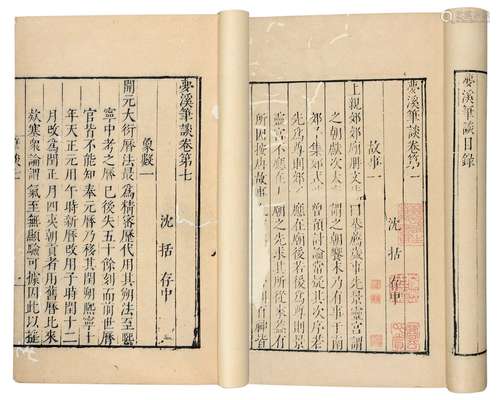 夢溪筆談目錄
夢溪筆談卷第一
沈括存中
故事一
上親郊郊廟冊文皆曰恭薦歲事先景靈宮謂
之朝獻次太廟謂之朝饗末乃有事于南
郊予集郊式時曾預討論常疑其次序若
先為尊則郊不應在廟後若後為尊則景
靈宮不應在太廟之先求其所從來蓋有
所因按唐故事
夢溪筆談卷第七
沈括存中
象數一
開元大衍曆法最為精密歷代用其朔法至熙
寧中考之曆已後失五十餘刻而前世曆
官皆不能知奉元曆乃移其閏朔熙寧十
年天正元用午時新曆改用子時閏十二
月改為閏正月四夷朝貢者用舊曆比來
欵塞衆論謂氣至無顯驗可據因此以搖